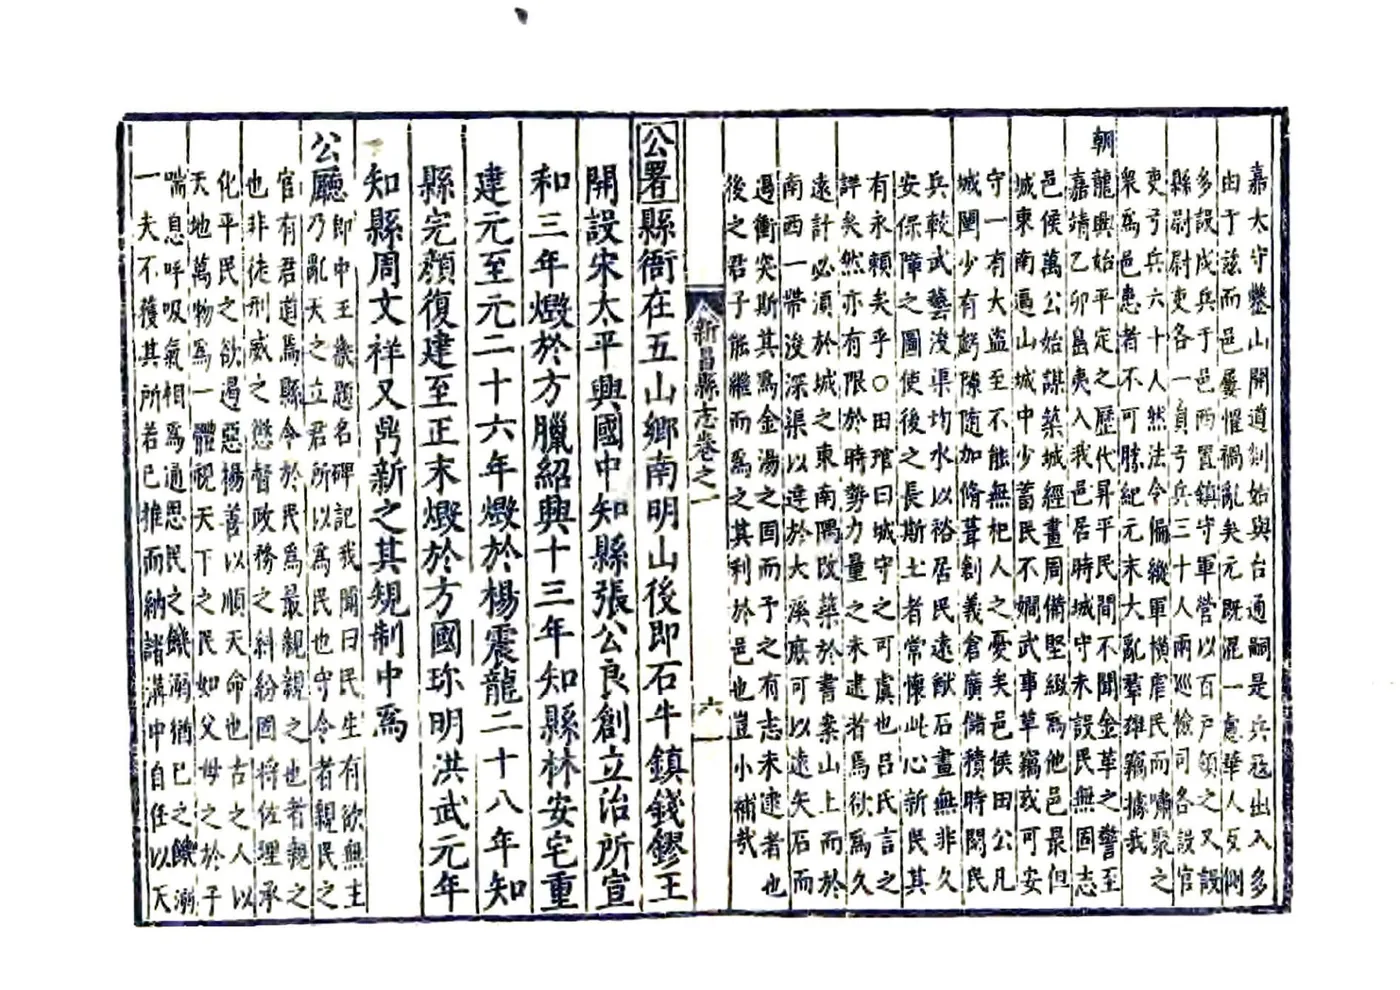 嘉太守鑿山開道創始與台通嗣是兵寇出入多
由于茲而邑屢懼禍亂矣元既混一慮華人反側
多設戍兵于邑西置鎮守軍營以百戶領之又設
縣尉尉吏各一員弓兵三十人兩巡檢司各設官
吏弓兵六十人然法令偏縱軍橫虐民而嘯聚之
衆爲邑患者不可勝紀元末大亂羣雄竊據我
朝龍興始平定之歷代昇平民間不聞金革之警至
嘉靖乙卯島夷入我邑居時城守未設民無固志
邑侯萬公始謀築城經畫周備堅緻爲他邑最但
城東南逼山城中少蓄民不嫺武事草竊或可安
守一有大盜至不能無杞人之憂矣邑侯田公凡
城闉少有虧隙隨加脩葺創義倉廣儲積時閱民
兵較武藝浚渠均水以裕居民遠猷石畫無非久
安保障之圖使後之長斯土者常懷此心新民其
有永賴矣乎○田琯曰城守之可虞也呂氏言之
詳矣然亦有限於時勢力量之未逮者爲欲爲久
遠計必須於城之東南隅改築於書案山上而於
南西一帶浚深渠以達於大溪庶可以遠矢石而
過衝突斯其爲金湯之固而予之有志未逮者也
後之君子能繼而爲之其利於邑也豈小補哉
新昌縣志卷之一
六
公署縣衙在五山鄉南明山後即石牛鎮錢鏐王
開設宋太平興國中知縣張公良創立治所宣
和三年燬於方臘紹興十三年知縣林安宅重
建元至元二十六年燬於楊震龍二十八年知
縣完顏復建至正末燬於方國珍明洪武元年
知縣周文祥又鼎新之其規制中爲
公廳即中王畿題名碑記我聞曰民生有欲無主
乃亂天之立君所以爲民也守令者親民之
官有君道焉縣令於民爲最親親之也者親之
也非徒刑威之懲督政務之糾紛固將佐理承
化平民之欲遏惡揚善以順天命也古之人以
天地萬物爲一體視天下之民如父母之於子
喘息呼吸氣相爲通思民之饑溺猶己之饑溺
一夫不獲其所若已推而納諸溝中自任以天